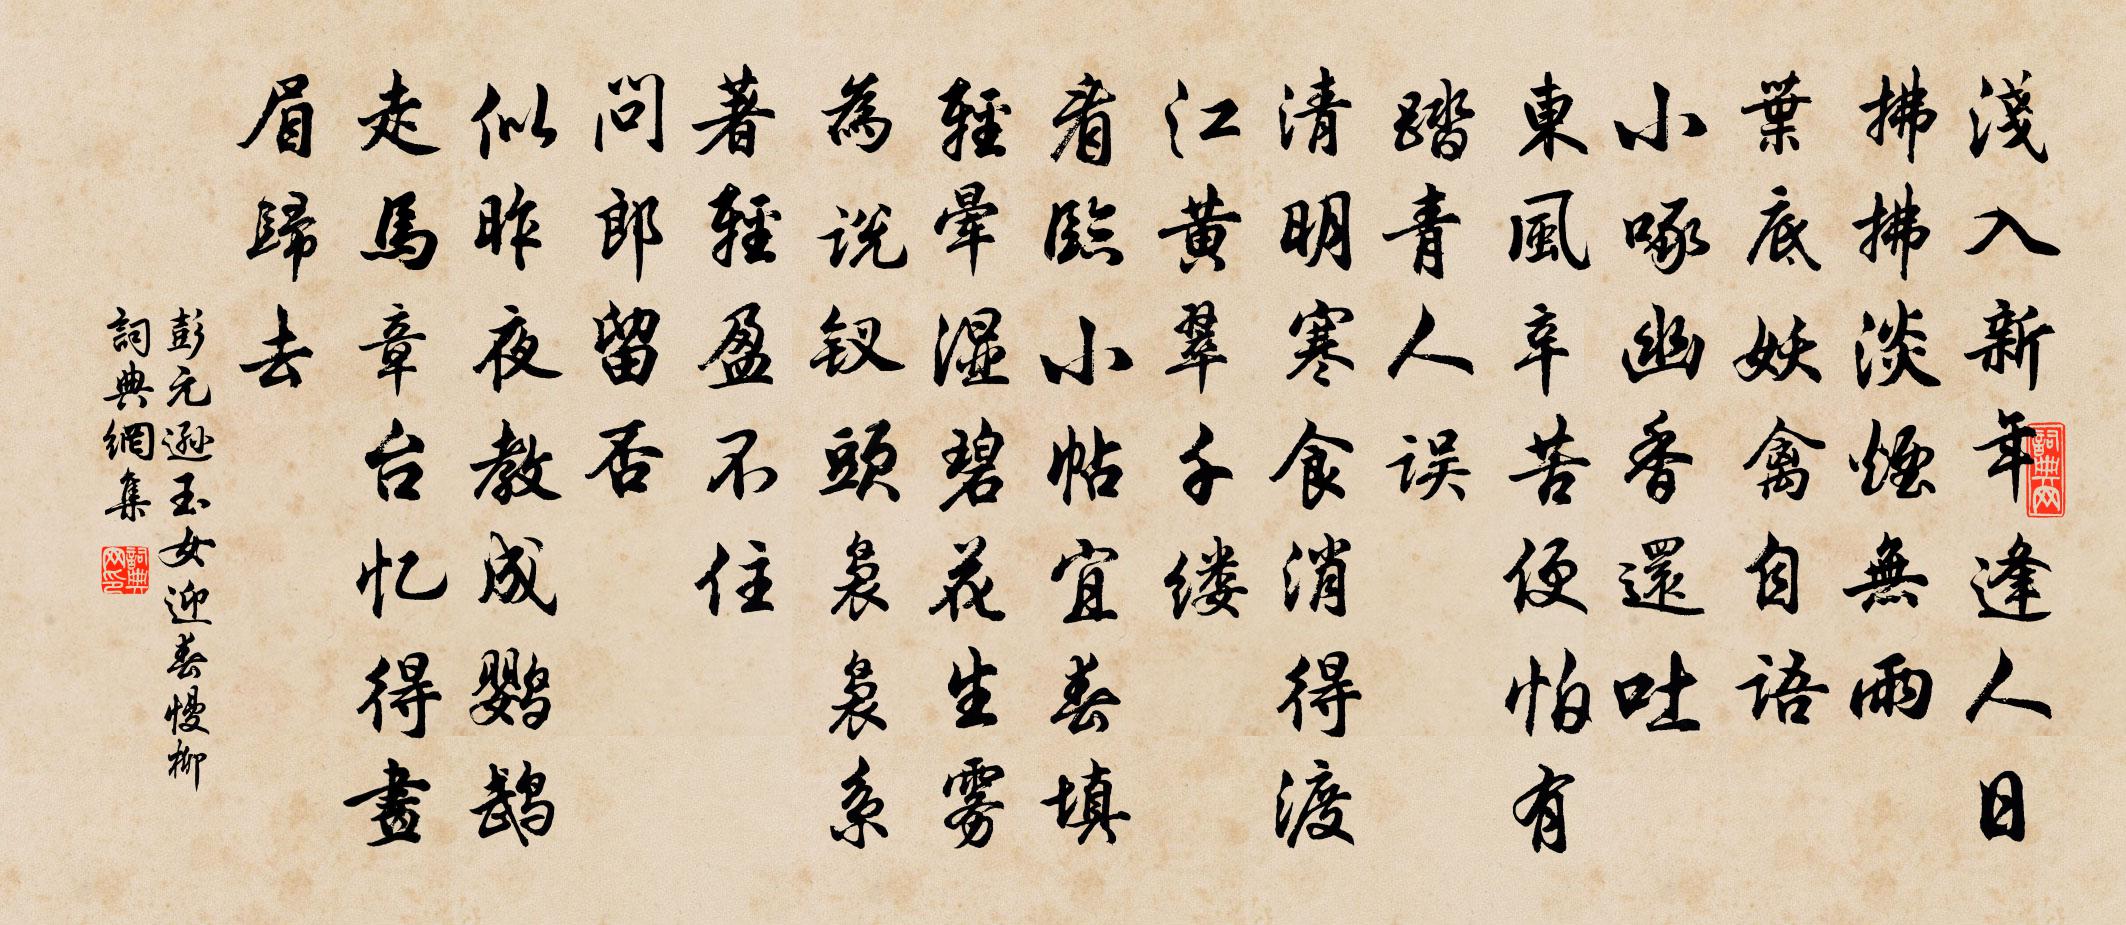 淺入新年逢人日
拂拂淡煙無雨
葉底妖禽自語
小啄幽香還吐
東風辛苦便怕有
踏青人误
清明寒食消得渡
江黄翠千缕
看臨小帖宜春填
輕暈湿碧花生雾
為说钗頭裊裊系
著輕盈不住
問郎留否
似昨夜教成鹦鹉
走馬章台忆得畫
眉歸去
彭元遜玉女迎春慢柳
詞典網集
詞典网
詞典网印